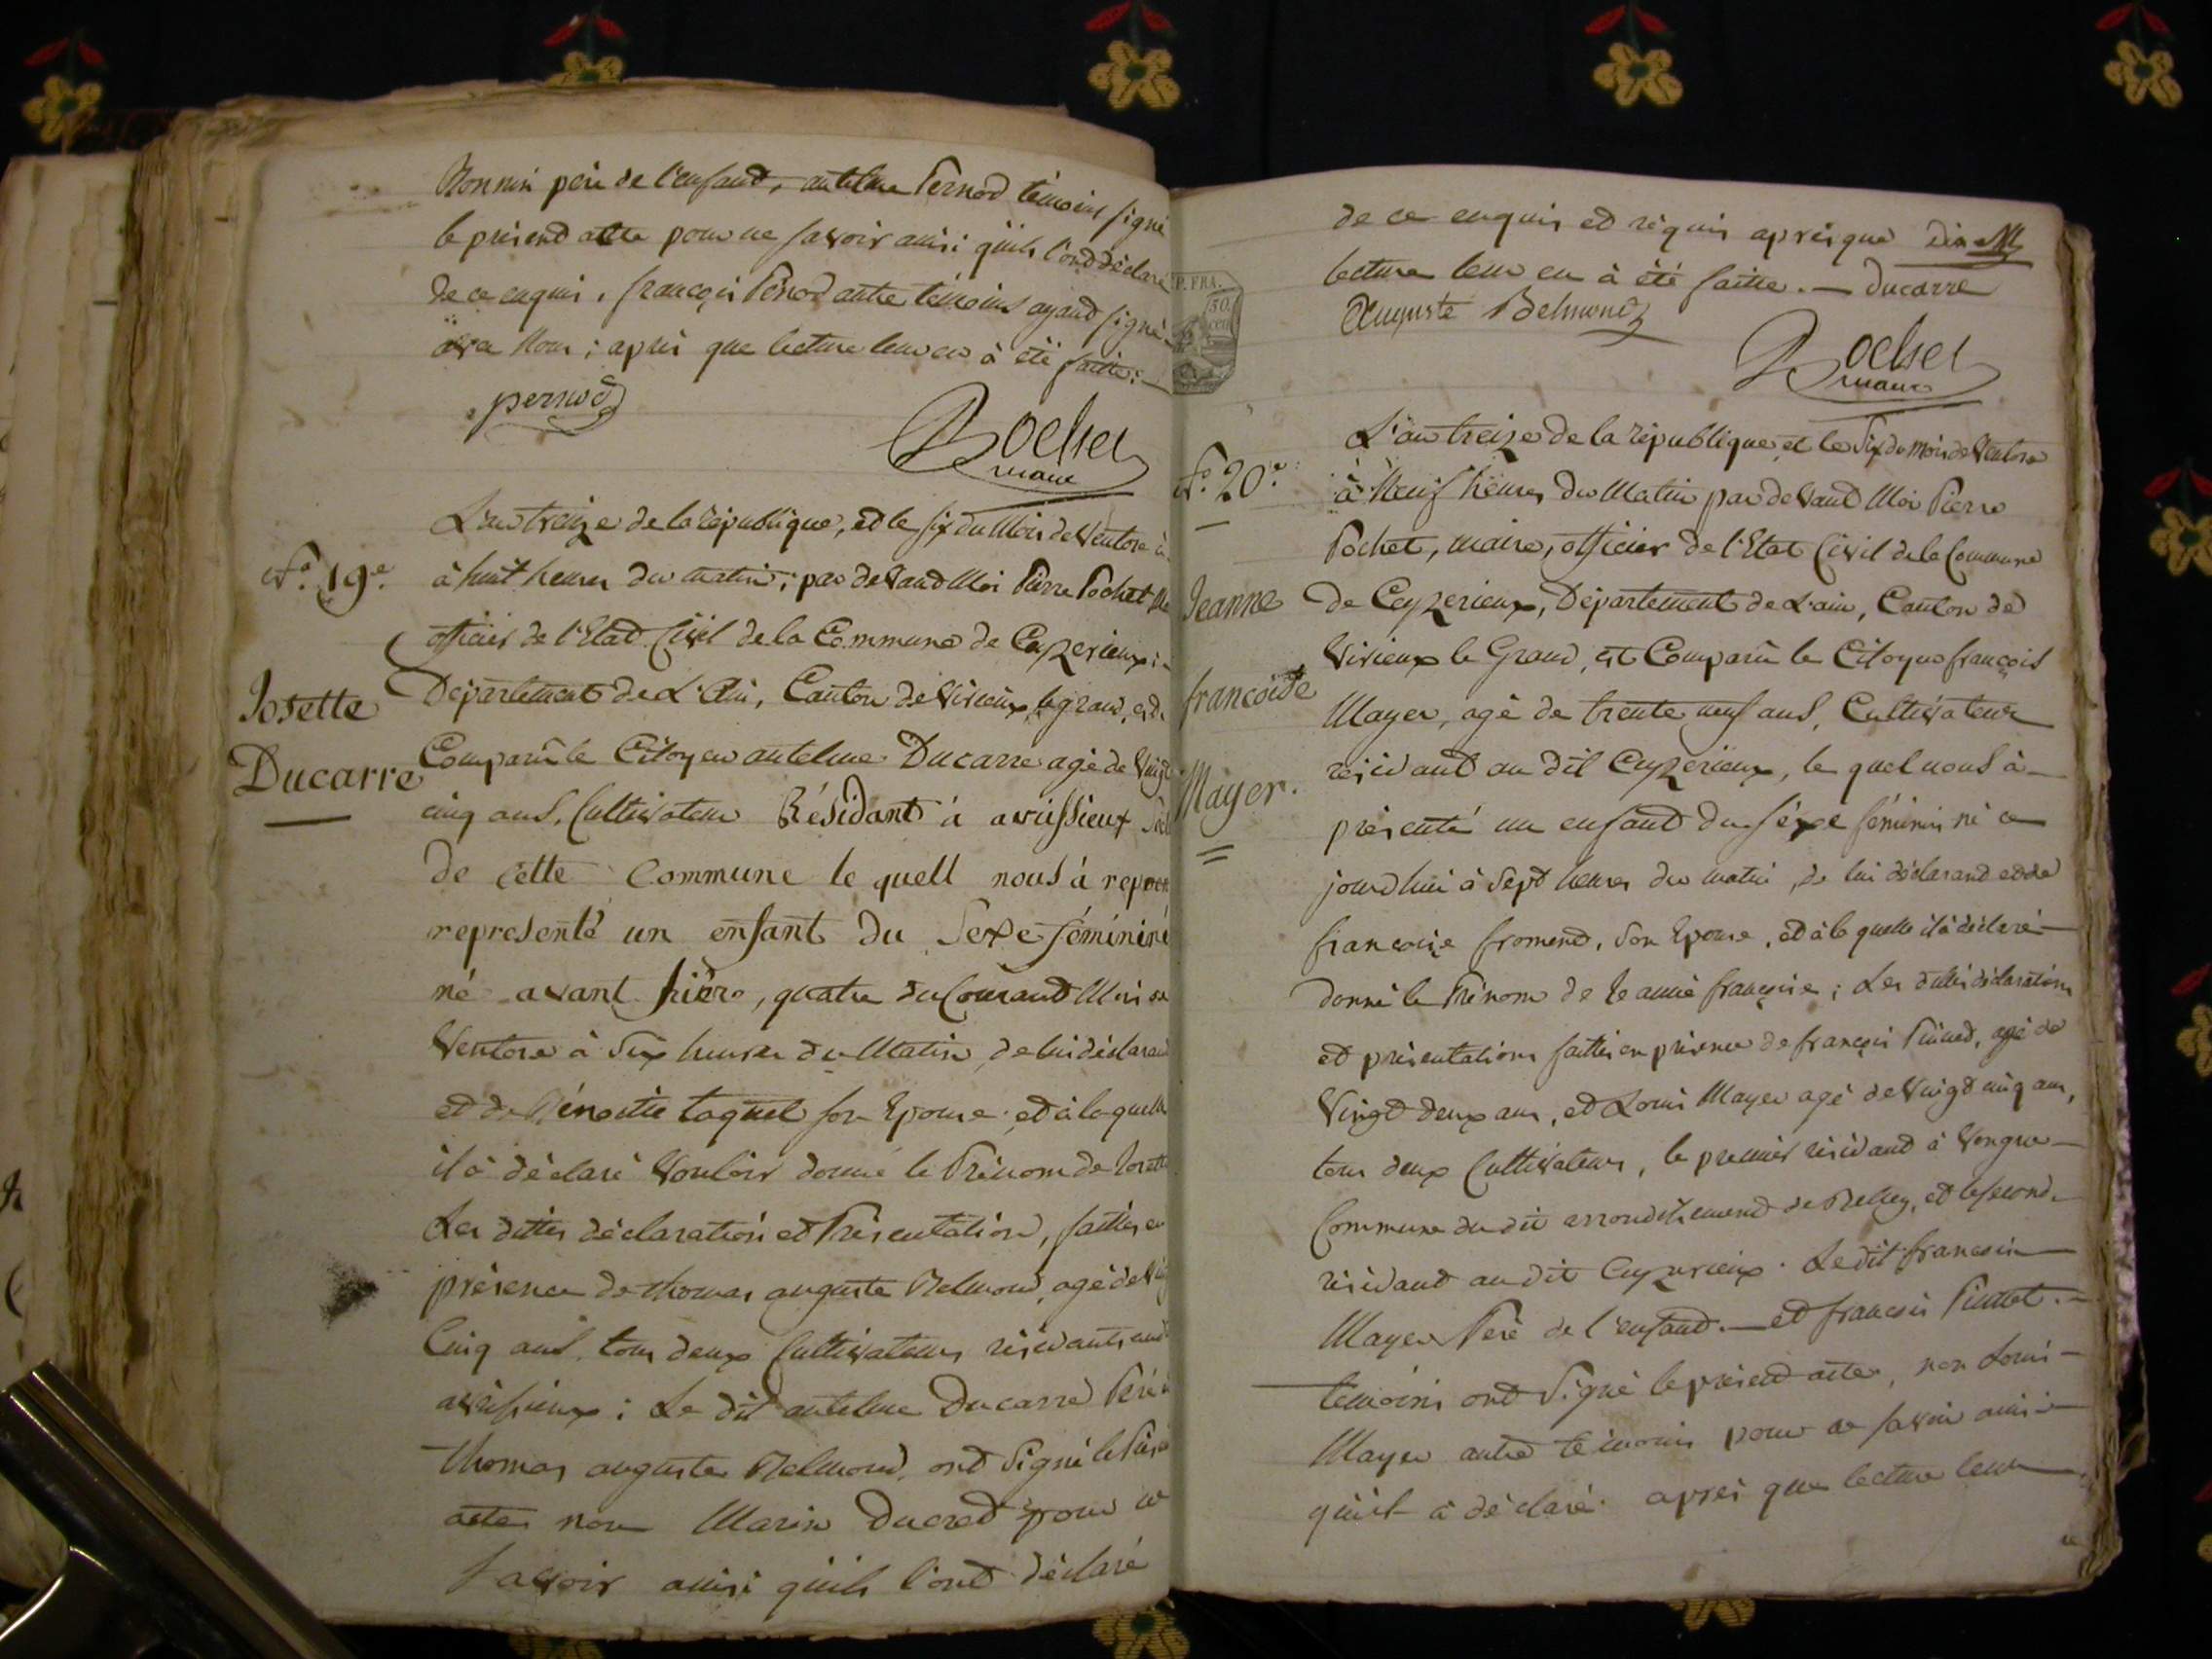 Monnin pere de l'enfand, antelme Pernod témoins signé
le présend acte pour ne savoir ainsi qu'ils l'ond déclaré
de ce enquis, françois Pernod autre témoins ayand signé
avec Nous ; après que lecture leur en à été faitte :
pernod
Pochet
maire
L'an treize de la république, et le six du Mois de Ventose à
N.° 19.e
à huit heures du matin, par devand Moi Pierre Pochet
officier de l'Etad Civil de la Commune de Ceyzerieux :
Josette
Département de L'Ain, Canton de Virieux le grand, est
Ducarre
Comparû le Citoyen antelme Ducarre agé de Vingt
cinq ans, Cultivateur Résidant à avrissieux
de cette Commune le quell nous à
representé un enfant du Sexe féminin
né avant hièr, quatre du Courand Mois de
Ventose à Six heures du Matin, de lui déclarand
et de Bénoitte taquet son Epouse, et à laquelle
il à déclaré Vouloir donné le Prénom de Josette
Les dittes déclaration et Présentation, faittes en
présence de thomas auguste Belmond, agé de
Cinq ans, tous deux Cultivateurs résidants
avrissieux ; Le dit antelme Ducarre Père
thomas auguste Belmond, ond Signé le
acte non Marin Ducred pour ne
savoir ainsi qu'ils l'ont déclaré
de ce enquis et réquis après que
lecture leur en à été faitte. — Ducarre
Auguste Belmond
P. FRA.
50
cen
Pochet
maire
L'an treize de la république et le Six du Mois de Ventose
N.° 20.e
à Neuf heures du Matin par devand Moi Pierre
Pochet, maire, officier de l'Etat Civil de la Commune
Jeanne
de Ceyzerieux, Département de L'ain, Canton de
Virieux le Grand, est Comparû le Citoyen françois
françoise
Mayer, agé de trente neuf ans, Cultivateur
résidant au dit Ceyzerieux, le quel nous à
Mayer.
présenté un enfand du sexe féminin né ce
jourd'hui à Sept heures du matin, de lui déclarand et de
françoise fromend, Son Epouse, et à la quelle il à déclaré
donné le Prénom de Jeanne françoise ; Les dittes déclarations
et présentations faittes en présence de françois Pinned, agé de
Vingt deux ans, et Louis Mayer agé de Vingt cinq ans,
tous deux Cultivateurs, le premier résidand à Vongne
Commune du dit arrondissement de Belley, et le second
résidand au dit Ceyzerieux. Le dit francois
Mayer Père de l'enfand. — et francois Pinnet.
témoins ond Signé le présend acte, non Louis
Mayer autre témoins pour ne savoir ainsi
qu'il à déclaré. après que lecture leur